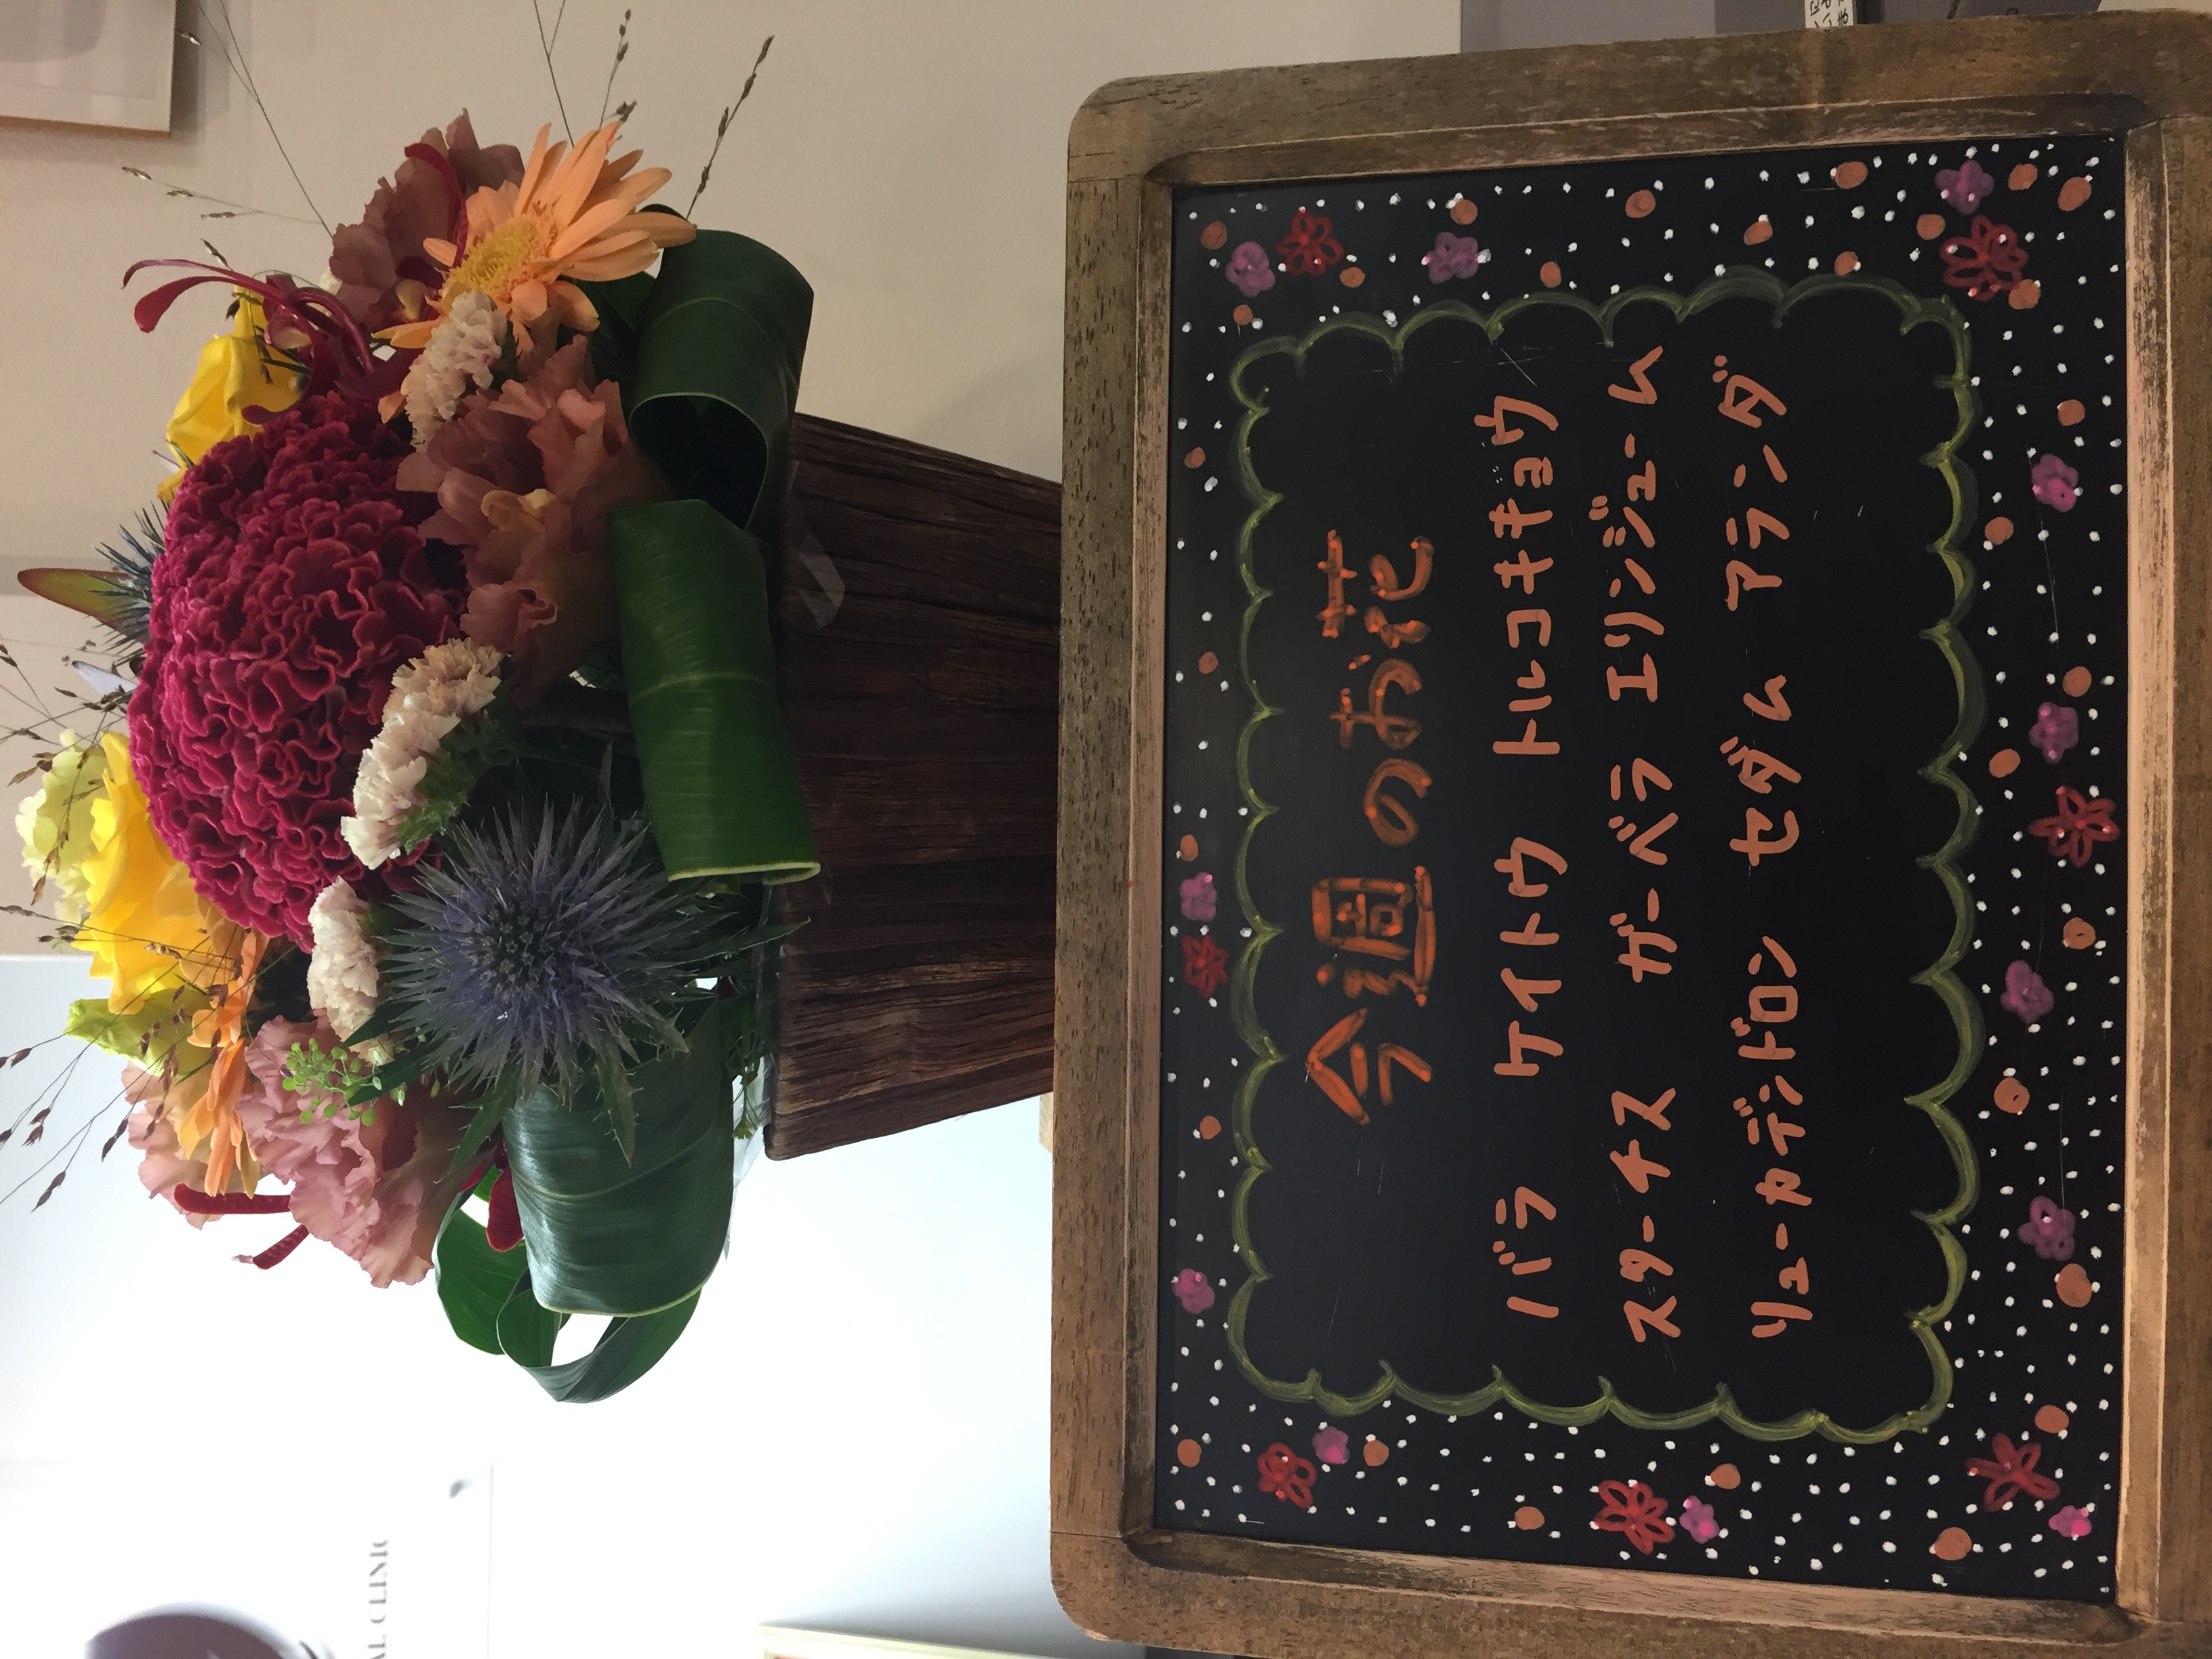 今週のお花
バラ ケイトウ トルコキキョウ
スターチス ガーベラ エリンジューム
リューカデンドロン セダム アランダ
AL CLINIC